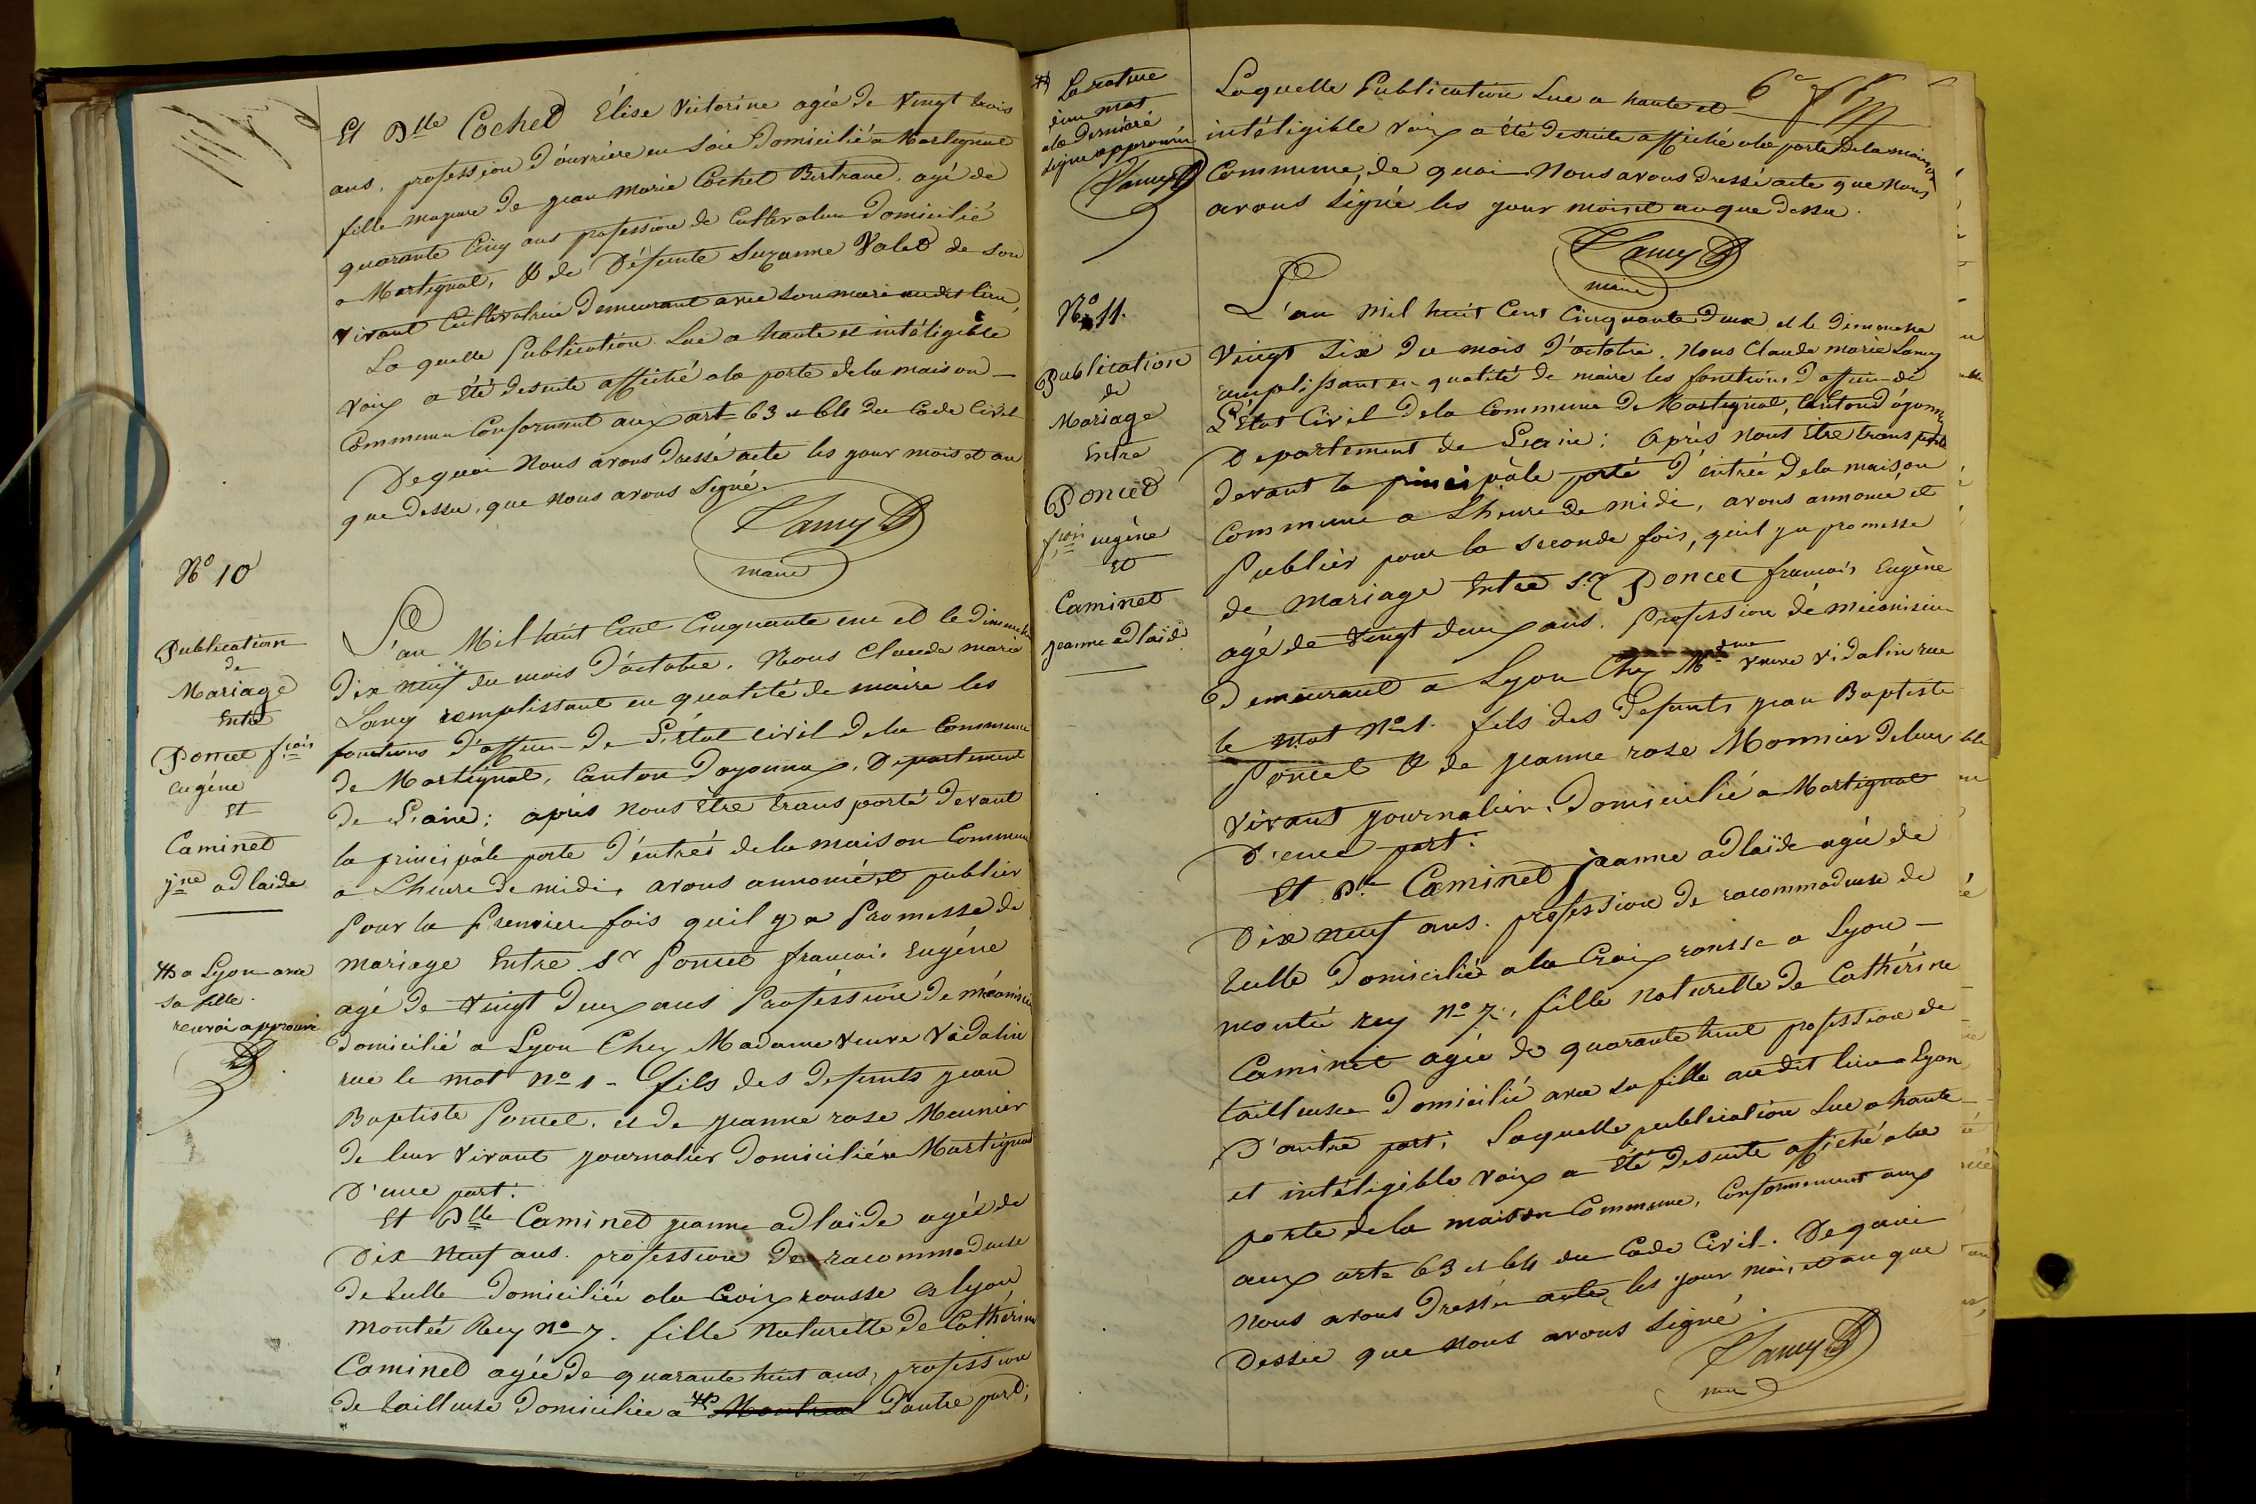 Et Dlle Cochet Élise Victorine agée de vingt trois
ans, profession d'ouvrière en soie domicilié a Martignat
fille majeure de jean Marie Cochet Bertrand, agé de
quarante cinq ans profession de Cultivateur domicilié
a Martignat, & de Défunte Suzanne Valet de son
vivant Cultivatrice demeurant avec son mari audit lieu,
La quelle Publication Lue a haute et intéligible
voix a été desuite affiché ala porte dela maison
Commune Conforment aux art= 63 et 64 du Code Civil
De quoi Nous avons dressé acte les jour mois et an
que dessu, que nous avons Signé.
Lancy
maire
No 10
Publication
de
Mariage
Entre
Poncet fcois
eugéne
Et
Caminet
jne adlaide
L'an Mil huit Cent Cinquante deux et le dimanche
dix neuf du mois d'octobre. Nous Claude marie
Lancy remplissant en qualité de maire les
fonctions d'officier de L'état civil dela Commune
de Martignat, Canton doyonnax, Departement
de L'ain; après nous être transporté devant
la principâle porte d'éntrés dela maison Commune
a Lheure de midi, avons annoncé et publier
Pour la Premiere fois quil y a Promesse de
mariage Entre sr Poncet francois Eugéne
agé de vingt deux ans Proféssion de mécanicien
domicilié a Lyon Chez Madame veuve Vidalin
rue le mot No 1 - fils des defunts jean
Baptiste Poncet. et de jeanne rose Meunier
de leur vivant journalier domiciliés a Martignat
D'une part.
Et Dlle Caminet jeanne adlaïde agée de
Dix Neuf ans. profession de racommodeuse
de tulle domiciliée ala Croix rousse a lyon,
montée Rey No 7. fille Naturelle de Cathérine
Caminet agée de quarante huit ans, profession
de tailleuse domiciliée a d'autre part;
a Lyon avec
sa fille.
renvoi approuvé
La rature
d'un mot
ala derniére
ligne approuvée
Lancy
6e
Laquelle Publication Lue a haute et
intéligible voix a été desuite affiché ala porte dela maison
Commune, de quoi Nous avons dressé acte que nous
avons Signé les jour mois et an que dessu.
Lancy
maire
No 11.
Publication
de
Mariage
Entre
Poncet
fcois eugéne
et
Caminet
jeanne adlaïde
L'an Mil huit Cent Cinquante deux et le dimanche
vingt Six du mois d'octobre. Nous Claude marie Lancy
remplissant en qualité de maire les fonctions d'officier de
L'État Civil dela Commune de Martignat, Canton d'oyonnax
Departement de L'ain; Après nous Être transporté
devant la principâle porté d'éntrée dela maison
Commune a Lheure de midi, avons annoncé et
Publiér pour la seconde fois, quil ya promesse
de mariage Entre s.r Poncet francois Eugène
agé de vingt deux ans. Profession dé mécanicien
demeurant a Lyon Chez Mdme veuve vidalin rue
le mot No 1. fils des defunts jean Baptiste
Poncet & de jeanne rose Monnier de leur
vivant journalier. Domicilié a Martignat
D'une part.
Et Dlle Caminet jeanne adlaïde agée de
Dix neuf ans. profession de racommodeuse de
tulle domiciliée ala Croix rousse a Lyon
montée rey No 7., fille naturelle de Cathérine
Caminet agée de quarante huit profession de
tailleuse domicilié avec sa fille audit lieu a Lyon
D'autre part; Laquelle publication Lue a haute
et intéligible voix a Été desuite affiché ala
porte dela maison Commune, Conformement aux
aux art= 63 et 64 du Code Civil. De quoi
nous avons dressée acte, les jour mois et an que
Dessue que nous avons Signé
Lancy